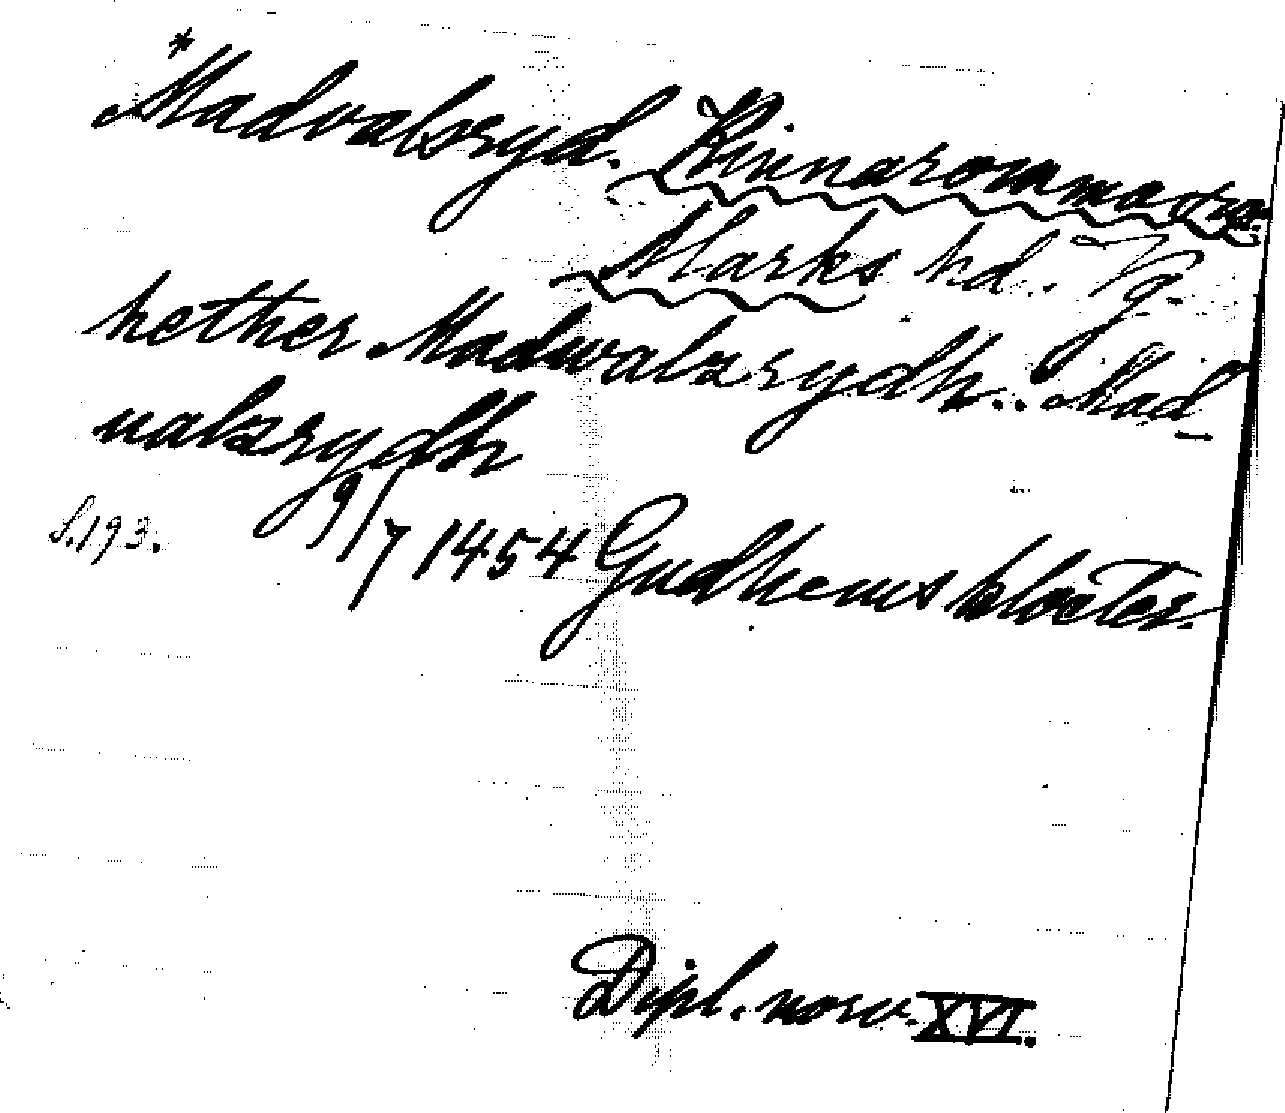 *Madvalsryd. Kinnaromma sn.
Marks hd. Vg.
hether Madwalzrydh.. Mad_
ualzrydh
S. 193. 9/7 1454 Gudhems kloster.
Dipl. norv. XVI.